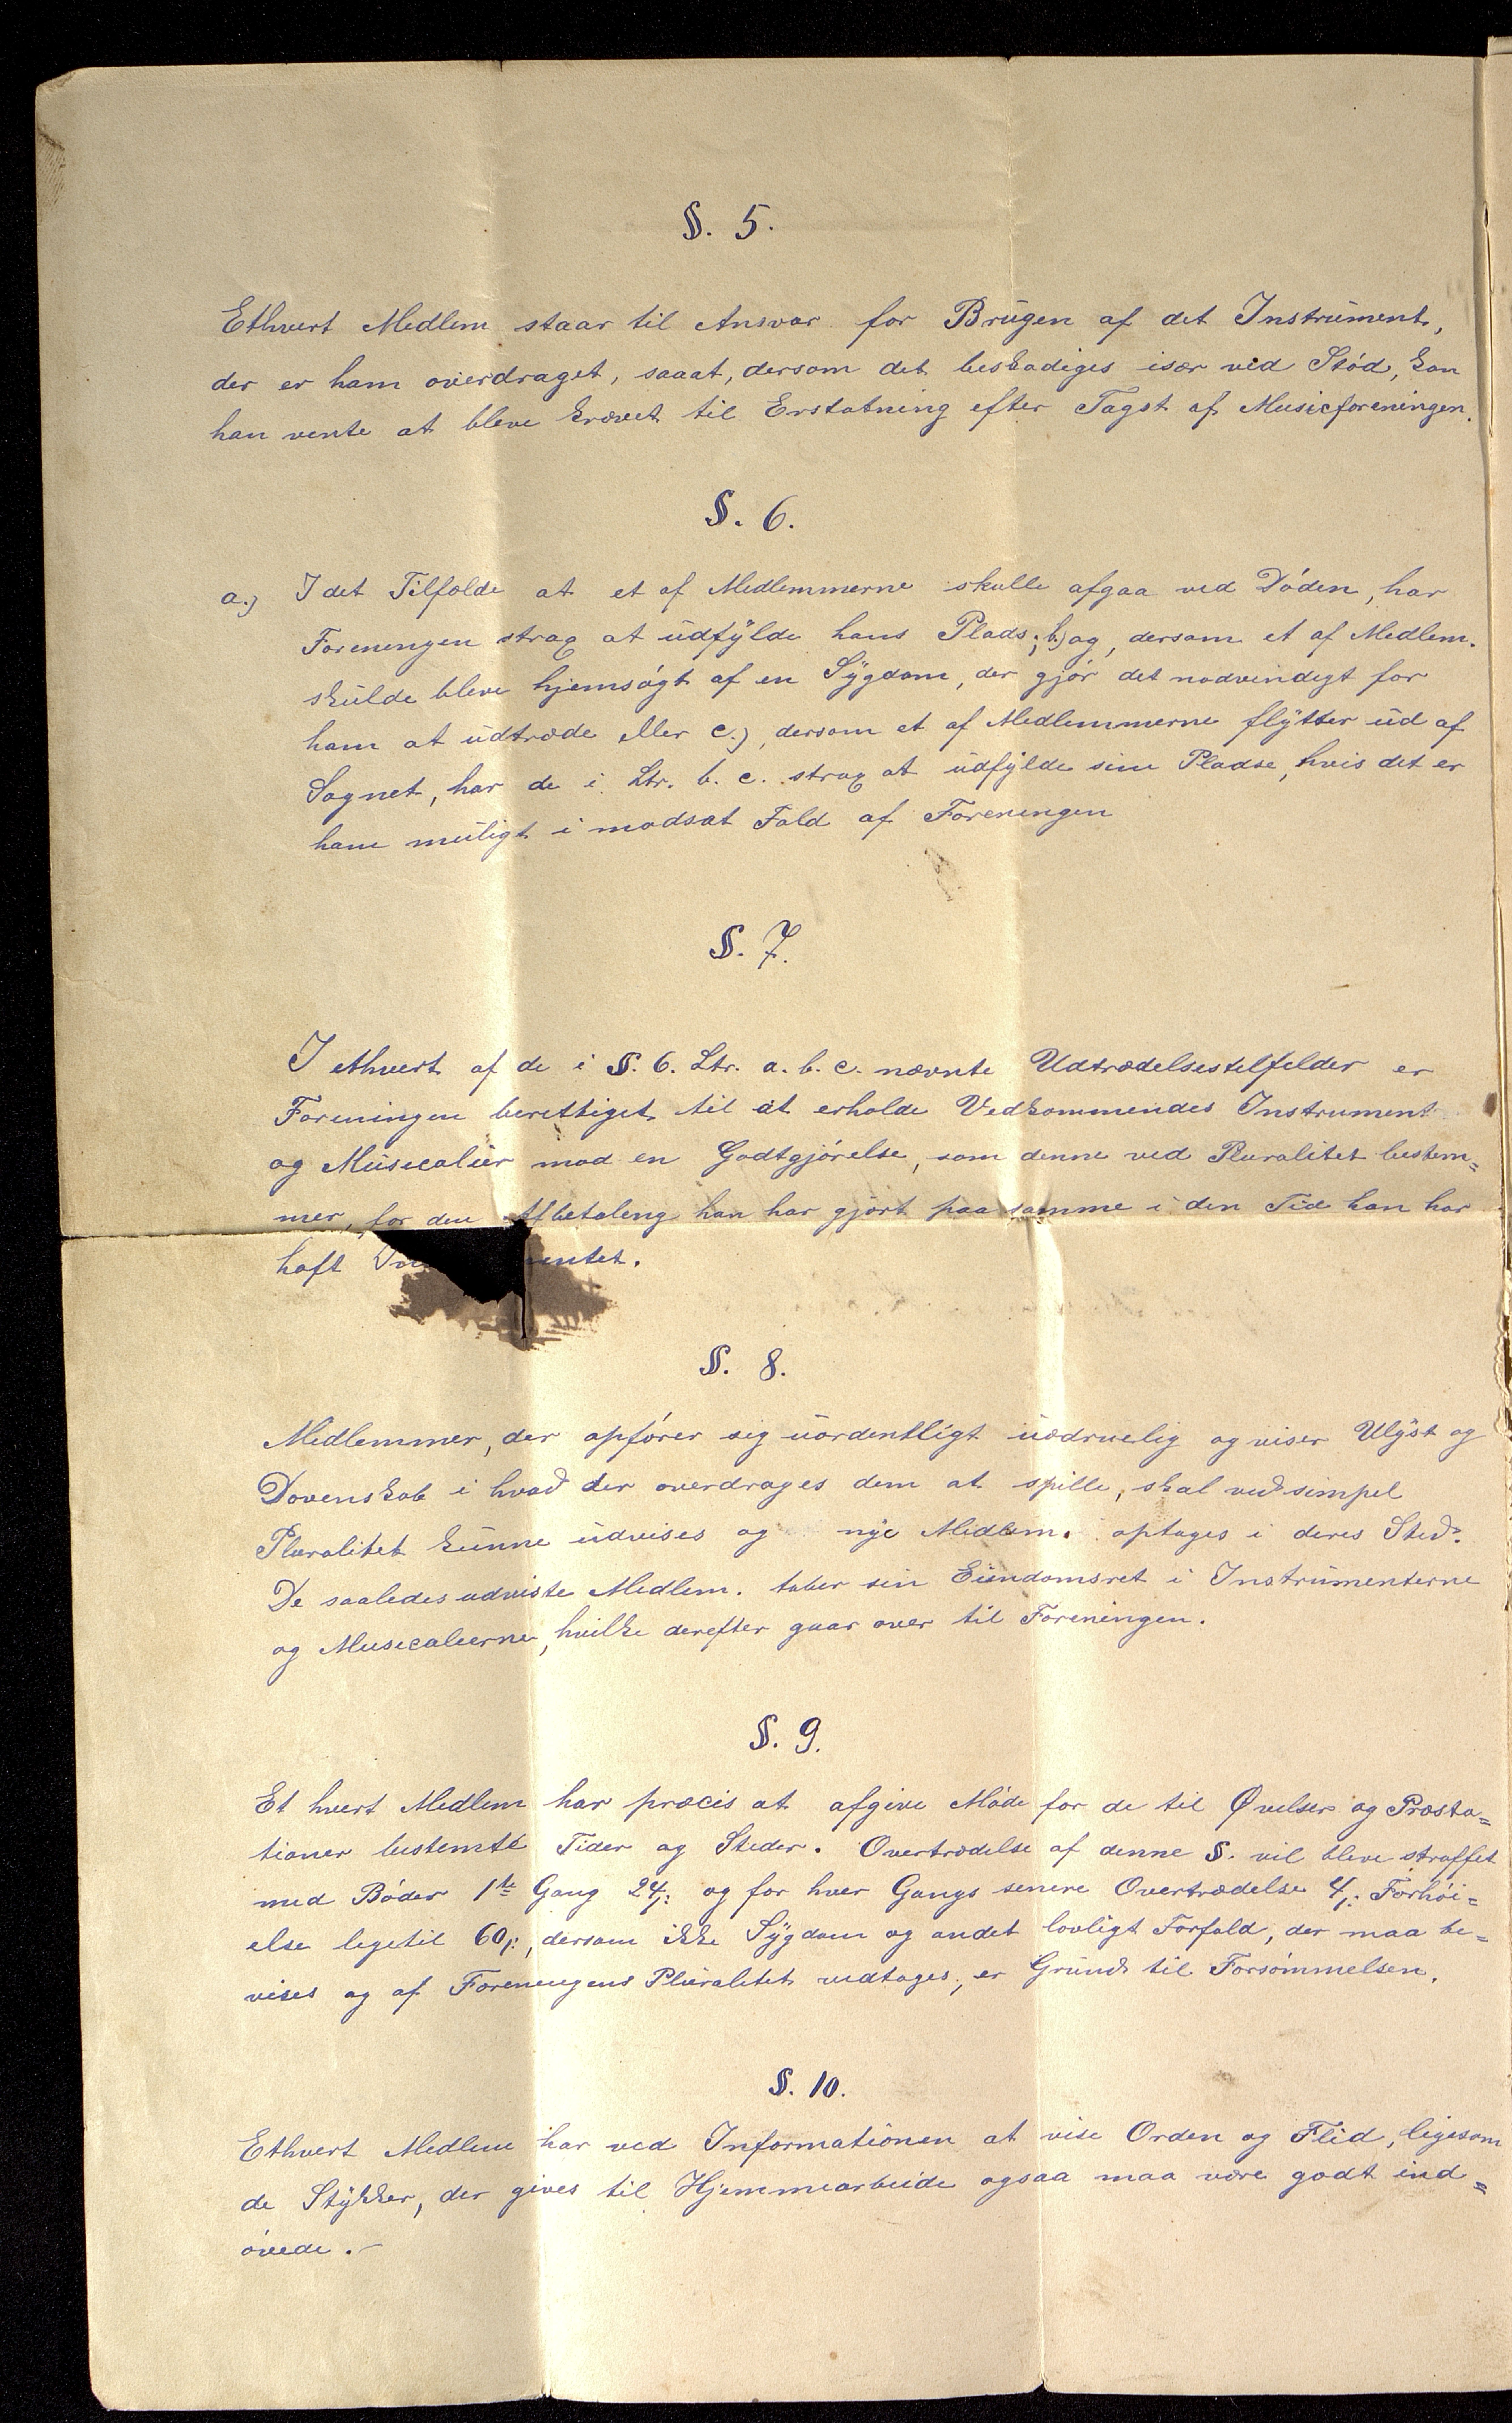 §. 5.
Ethvert Medlem staar til Ansvar for Brugen af det Instrument,
der er ham overdraget, saaat, dersom det beskadiges især ved Stód, kan
han vente at blive krævet til Erstatning efter Tagst af Musicforeningen.
§. 6.
a.) I det Tilfælde at et af Medlemmerne skulle afgaa ved Dóden, har
Foreningen strax at udfylde hans Plads; b) og, dersom et af Medlem.
skulde blive hjemsógt af en Sygdom, der gjór det nødvendigt for
ham at udtræde eller c.), dersom et af Medlemmerne flytter ud af
Sognet, har de i Ltr. b. c. strax at udfylde sine Pladse, hvis det er
ham muligt i modsat Fald af Foreningen
§. 7.
I ethvert af de i §. 6. Ltr. a. b. c. nævnte Udtrædelsestilfælder er
Foreningen berettiget til at erholde Vedkommendes Instrument
og Musicalier mod en Godtgjórelse, som denne ved Pluralitet bestem=
mer, for den Afbetaling han har gjórt paa samme i den Tid han har
haft mentet.
§. 8.
Medlemmer, der opfórer sig uordentligt uædruelig og viser Ulyst og
Dovenskab i hvad der overdrages dem at spille, skal ved simpel
Pluralitet kunne udvises og nye Medlem. optages i deres Sted.
De saaledes udviste Medlem. taber sin Eiendomsret i Instrumenterne
og Musicalierne, hvilke derefter gaar over til Foreningen.
§. 9.
Et hvert Medlem har præcis at afgive Móde for de til Øvelser og Præsta=
tioner bestemte Tider og Steder. Overtrædelse af denne §. vil blive straffet
med Bóder 1ste Gang 24/: og for hver Gangs senere Overtrædelse 4/: Forhói=
else ligetil 60/:, dersom ikke Sygdom og andet lovligt Forfald, der maa be=
vises og af Foreningens Pluralitet vedtages, er Grund til Forsómmelsen.
§. 10.
Ethvert Medlem har ved Informationen at vise Orden og Flid, ligesom
de Stykker, der gives til Hjemmearbeide ogsaa maa være godt ind=
óvede.-